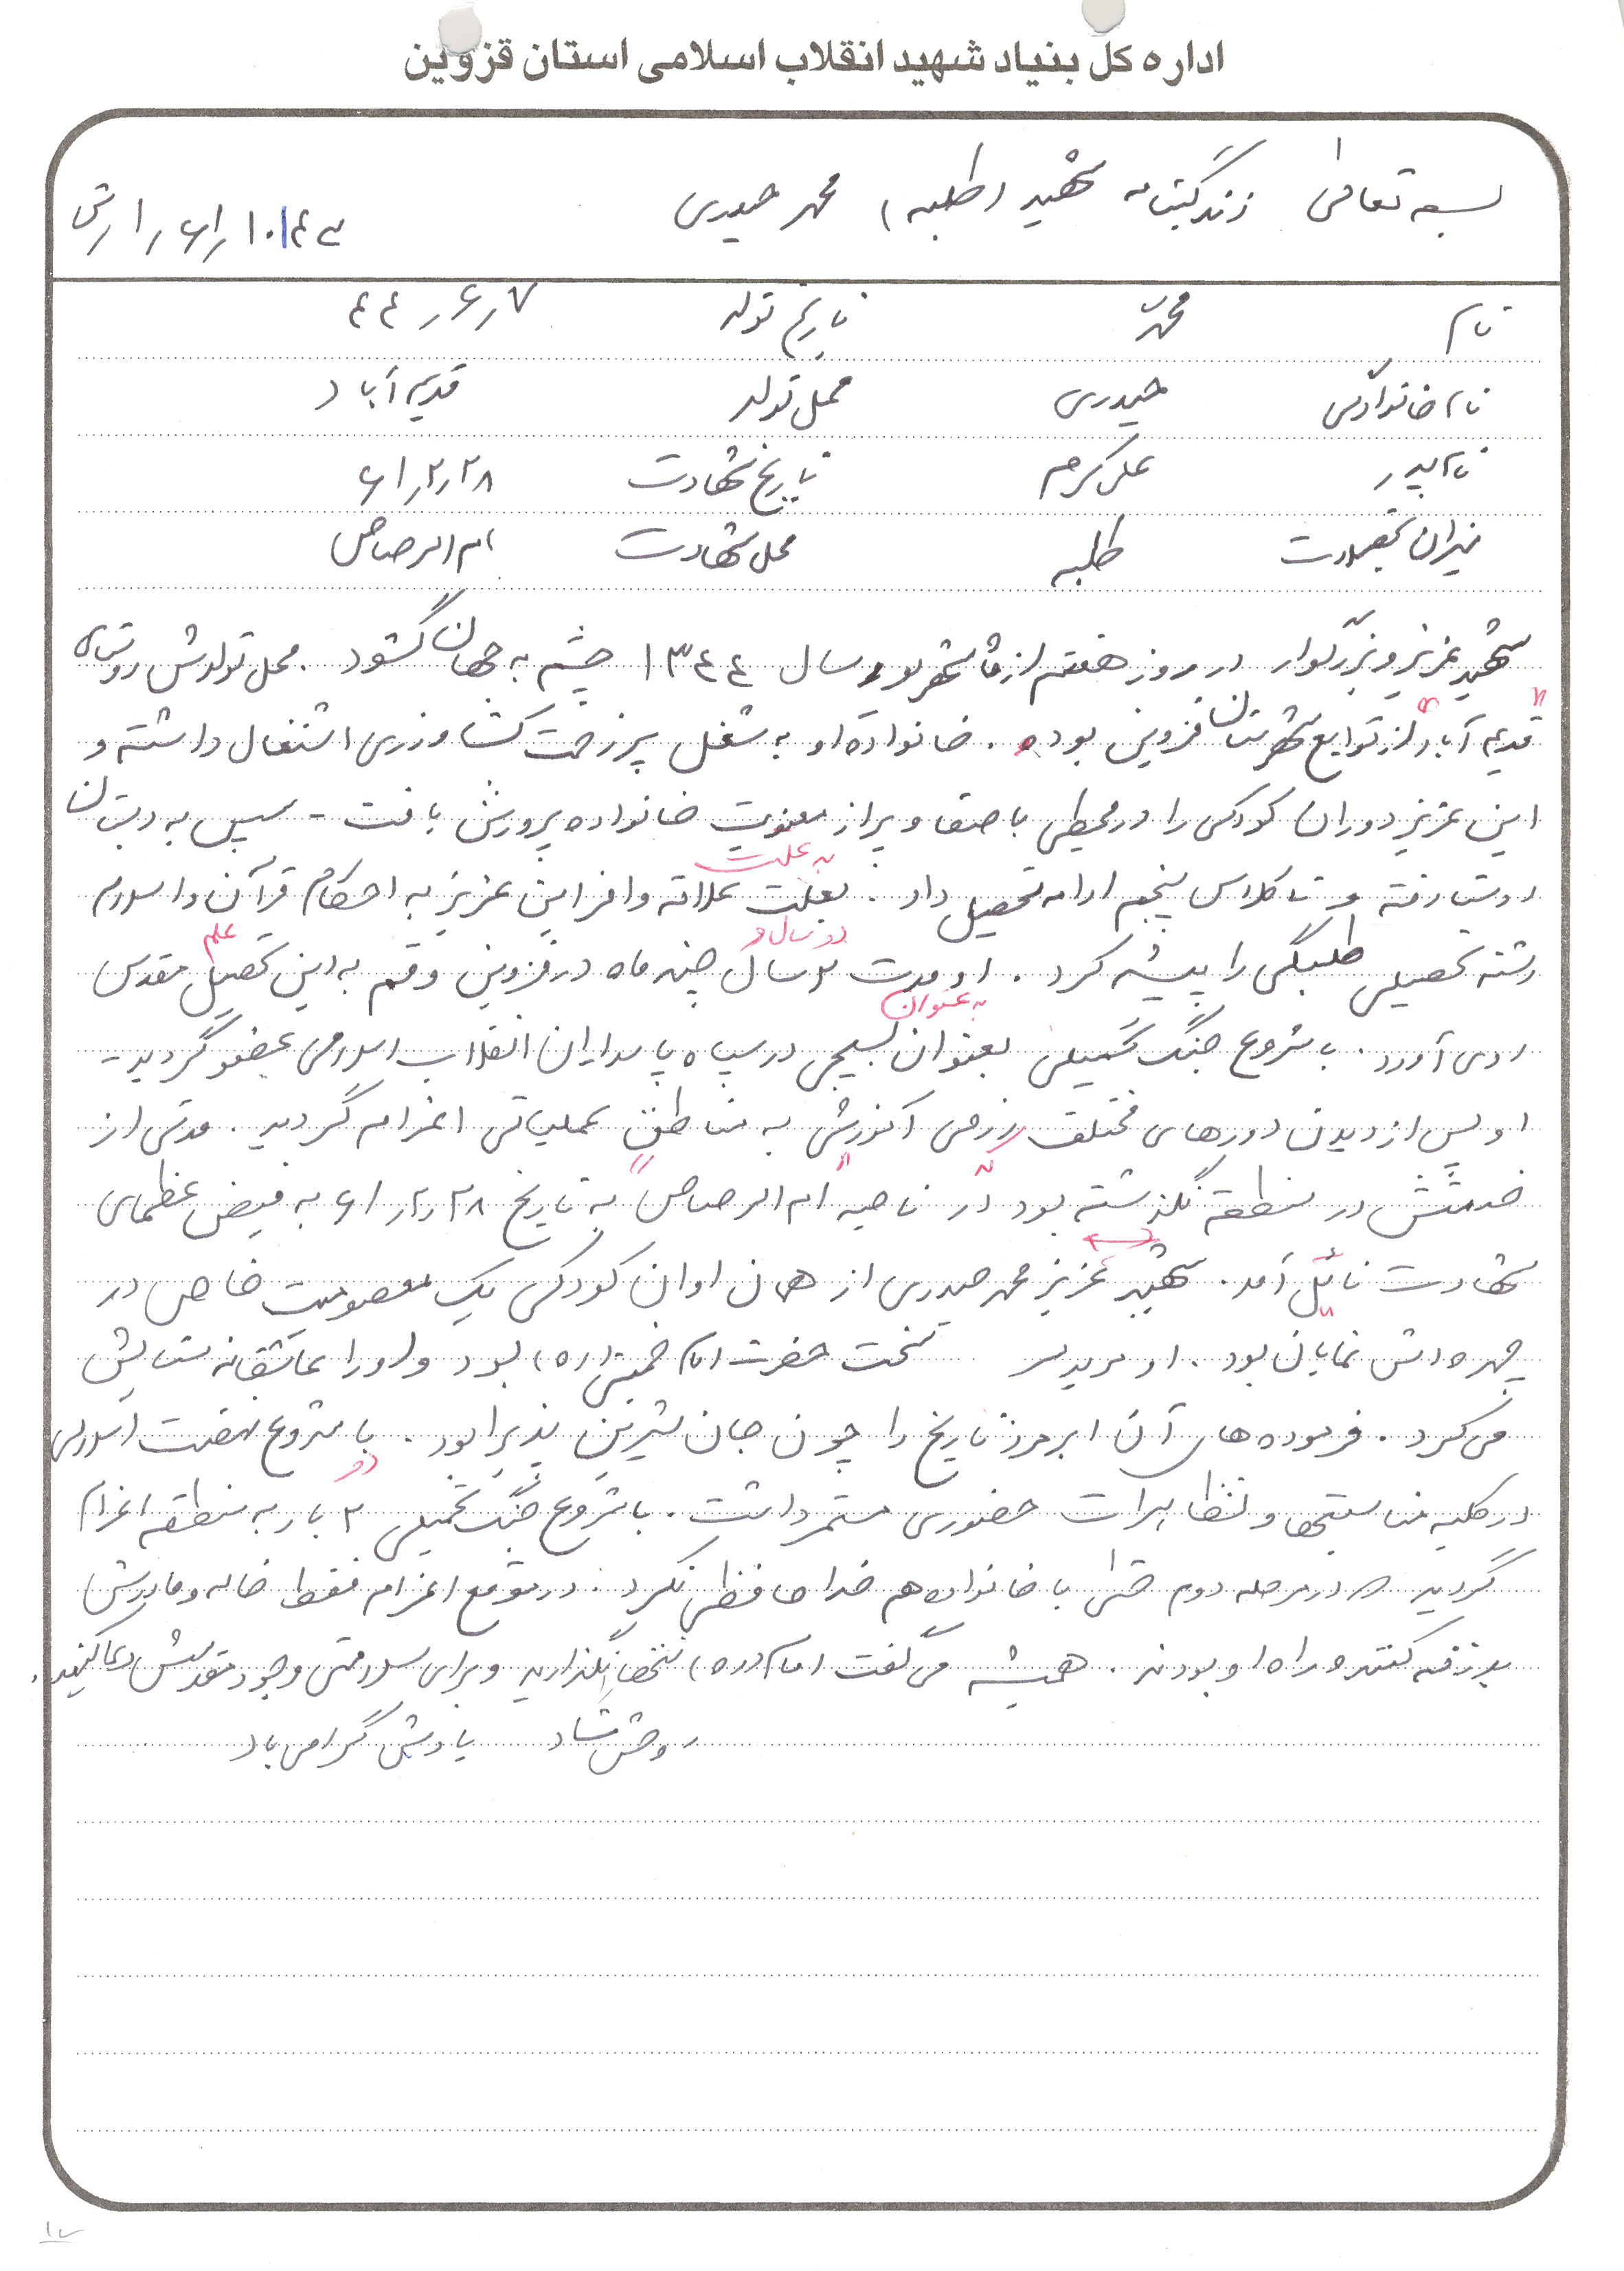 اداره کل بنیاد شهید انقلاب اسلامی استان قزوین
بسمه تعالی زندگینامه شهید (طلبه) محمد حیدری
نام محمد تاریخ تولد ۴۴٫۶٫۷
نام خانوادگی حیدری محل تولد قدیم آباد
نام پدر علی کرم تاریخ شهادت ۶۱٫۲٫۲۸
میزان تحصیلات طلبه محل شهادت ام الرصاص
شهید عزیز و بزرگوار در روز هفتم از ماه شهریور سال ۱۳۴۴ چشم به جهان گشود . محل تولدش روستای
"قدیم آباد" از توابع شهرستان قزوین بوده . خانواده او به شغل پر زحمت کشاورزی اشتغال داشته و
این عزیز دوران کودکی را در محیطی باصفا و پر از معنویت خانواده پرورش یافت - سپس به دبستان
به علت
روستا رفته و تا کلاس پنجم ادامه تحصیل داد . بعلت علاقه وافر این عزیز به احکام قرآن و اسلام
دو سال و علم
رشته تحصیلی طلبگی را پیشه کرد . او مدت ۲ سال چند ماه در قزوین و قم به این تحصیل مقدس
به عنوان
روی آورد . با شروع جنگ تحمیلی بعنوان بسیجی در سپاه پاسداران انقلاب اسلامی عضو گردید -
او پس از دیدن دورهای مختلف رزمی آموزشی به مناطق عملیاتی اعزام گردید . مدتی از
خدمتش در منطقه نگذشته بود در ناحیه "ام الرصاص" به تاریخ ۶۱٫۲٫۲۸ به فیض عظمای
شهادت نائل آمد . شهید عزیز محمد حیدری از همان اوان کودکی یک معصومیت خاص در
چهره اش نمایان بود . او مرید سر سخت حضرت امام خمینی (ره) بود و او را عاشقانه ستایش
می کرد . فرموده های آن ابرمرد تاریخ را چون جان شیرین پذیرا بود . با شروع نهضت اسلامی
دو
در کلیه مناسبتها و تظاهرات حضوری مستمر داشت . با شروع جنگ تحمیلی ۲ بار به منطقه اعزام
گردید در مرحله دوم حتی با خانواده هم خداحافظی نکرد . در موقع اعزام فقط خاله و مادرش
بدرقه کننده راه او بودند . همیشه می گفت امام (ره) تنها نگذارید و برای سلامتی وجود مقدسش دعا کنید .
روحش شاد یادش گرامی باد
۱۷